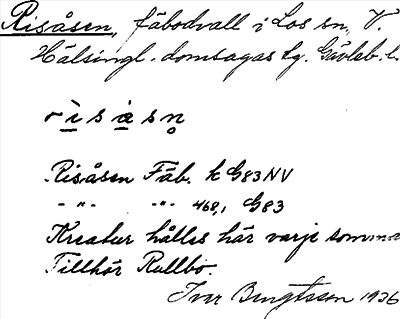 Risåsen, fäbodvall i Los sn, V.
Hälsingl. domsagas tg. Gävleb. l.
rìsàsn̥
Risåsen Fäb. k G83 NV
-"- -"- 468,1 G83
Kreatur hålles här varje somma
Tillhör Rullbo.
Ivar Bengtsson 1936